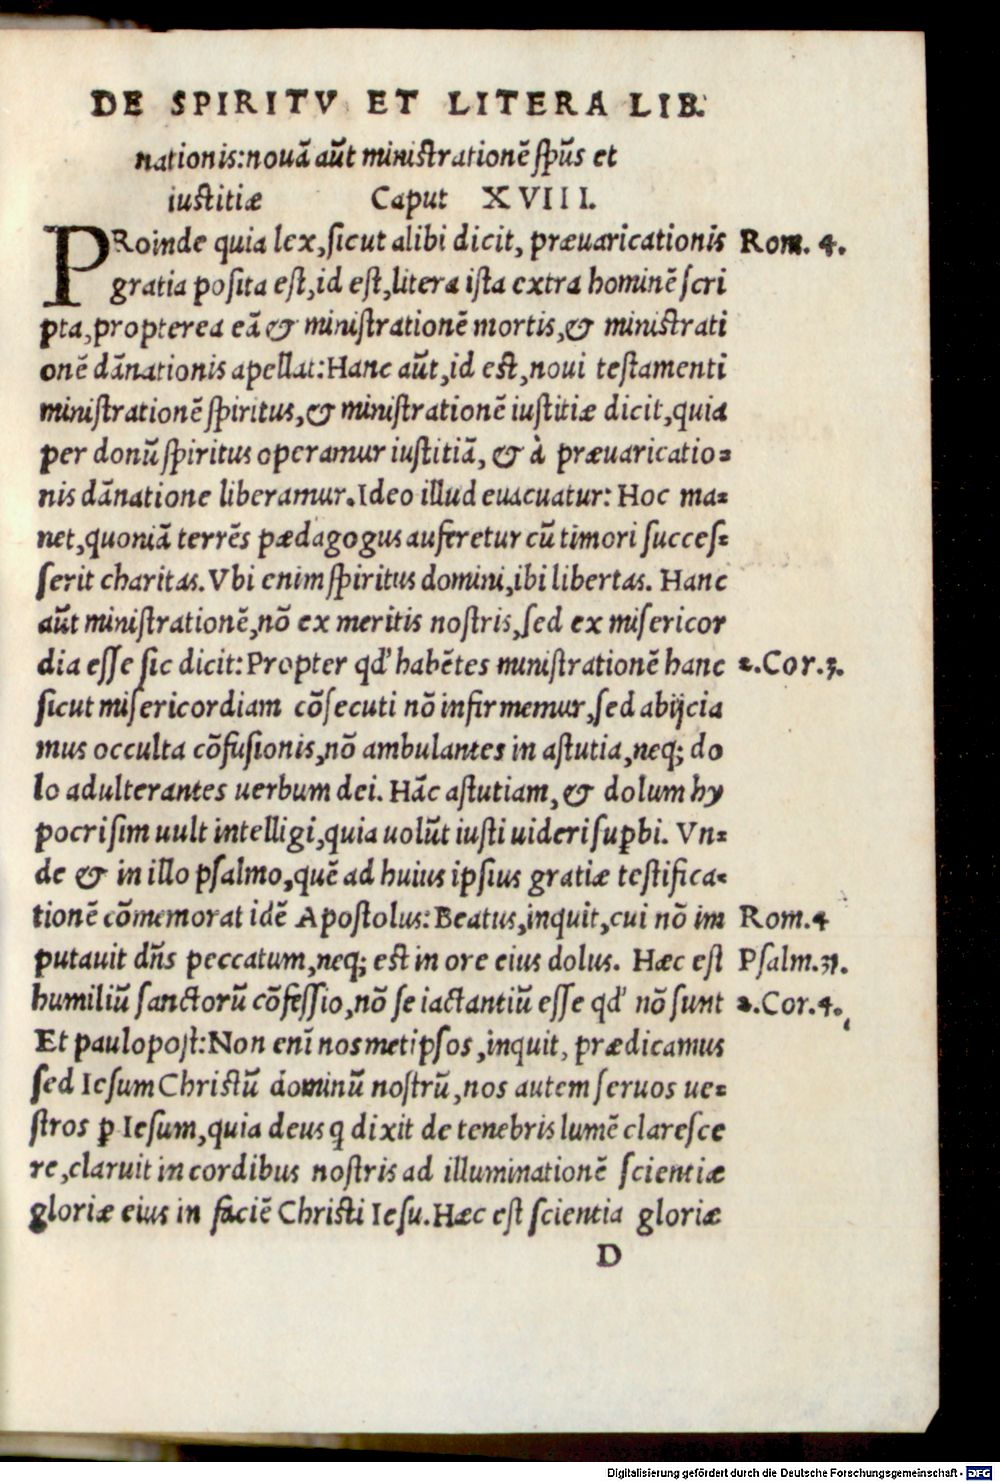 DE SPIRITV ET LITERA LIB.
nationis: nouā aūt ministrationē sp̄us et
iustitiæ Caput XVIII.
PRoinde quia lex, sicut alibi dicit, præuaricationis Rom. 4.
gratia posita est, id est, litera ista extra hominē scri
pta, propterea eā & ministrationē mortis, & ministrati
onē dānationis apellat: Hanc aūt, id est, noui testamenti
ministrationē spiritus, & ministrationē iustitiæ dicit, quia
per donū spiritus operamur iustitiā, & à præuaricatio=
nis dānatione liberamur. Ideo illud euacuatur: Hoc ma=
net, quoniā terrēs pædagogus auferetur cū timori succes=
serit charitas. Vbi enim spiritus domini, ibi libertas. Hanc
aūt ministrationē, nō ex meritis nostris, sed ex misericor
dia esse sic dicit: Propter qđ habētes ministrationē hanc 2. Cor. 3.
sicut misericordiam cōsecuti nō infirmemur, sed abijcia
mus occulta cōfusionis, nō ambulantes in astutia, neq; do
lo adulterantes uerbum dei. Hāc astutiam, & dolum hy
pocrisim uult intelligi, quia uolūt iusti uideri sup̱bi. Vn=
de & in illo psalmo, quē ad huius ipsius gratiæ testifica=
tionē cōmemorat idē Apostolus: Beatus, inquit, cui nō im Rom. 4
putauit dn̄s peccatum, neq; est in ore eius dolus. Hæc est Psalm. 31.
humiliū sanctorū cōfessio, nō se iactantiū esse qđ nō sunt 2. Cor. 4.
Et paulopost: Non enī nosmetipsos, inquit, prædicamus
sed Iesum Christū dominū nostrū, nos autem seruos ue=
stros p̱ Iesum, quia deus q̱ dixit de tenebris lumē claresce
re, claruit in cordibus nostris ad illuminationē scientiæ
gloriæ eius in faciē Christi Iesu. Hæc est scientia gloriæ
D
Digitalisierung gefördert durch die Deutsche Forschungsgemeinschaft - DFG